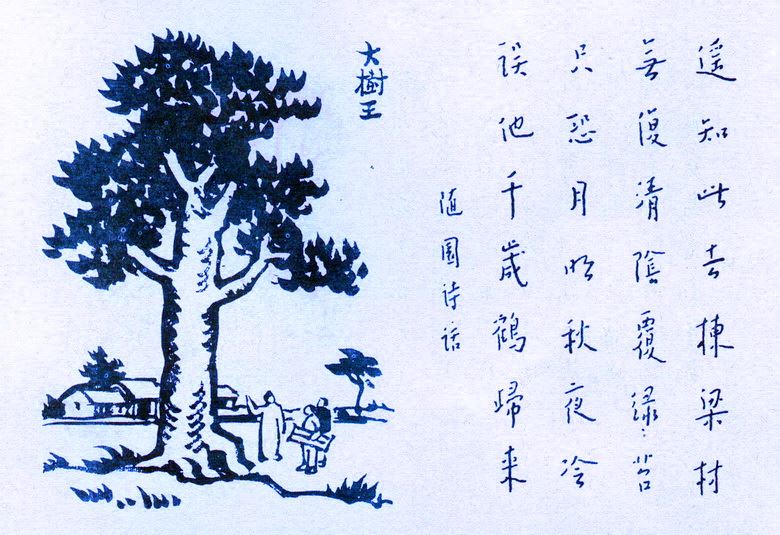 遥知此去棟梁材
無復清陰覆绿苔
只恐月明秋夜冷
誤他千歲鶴歸来
随園诗话
大樹王